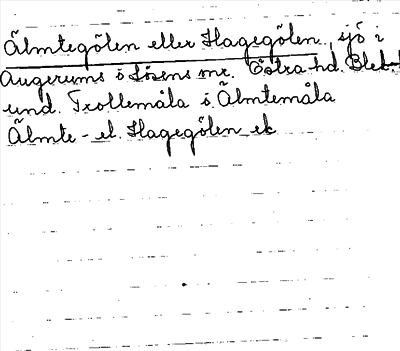 Älmtegölen eller Hagegölen, sjö i
Augerums o Lösens snr. Östra hd. Blek.
und. Trollemåla o. Älmtemåla
Älmte- el. Hagegölen ek